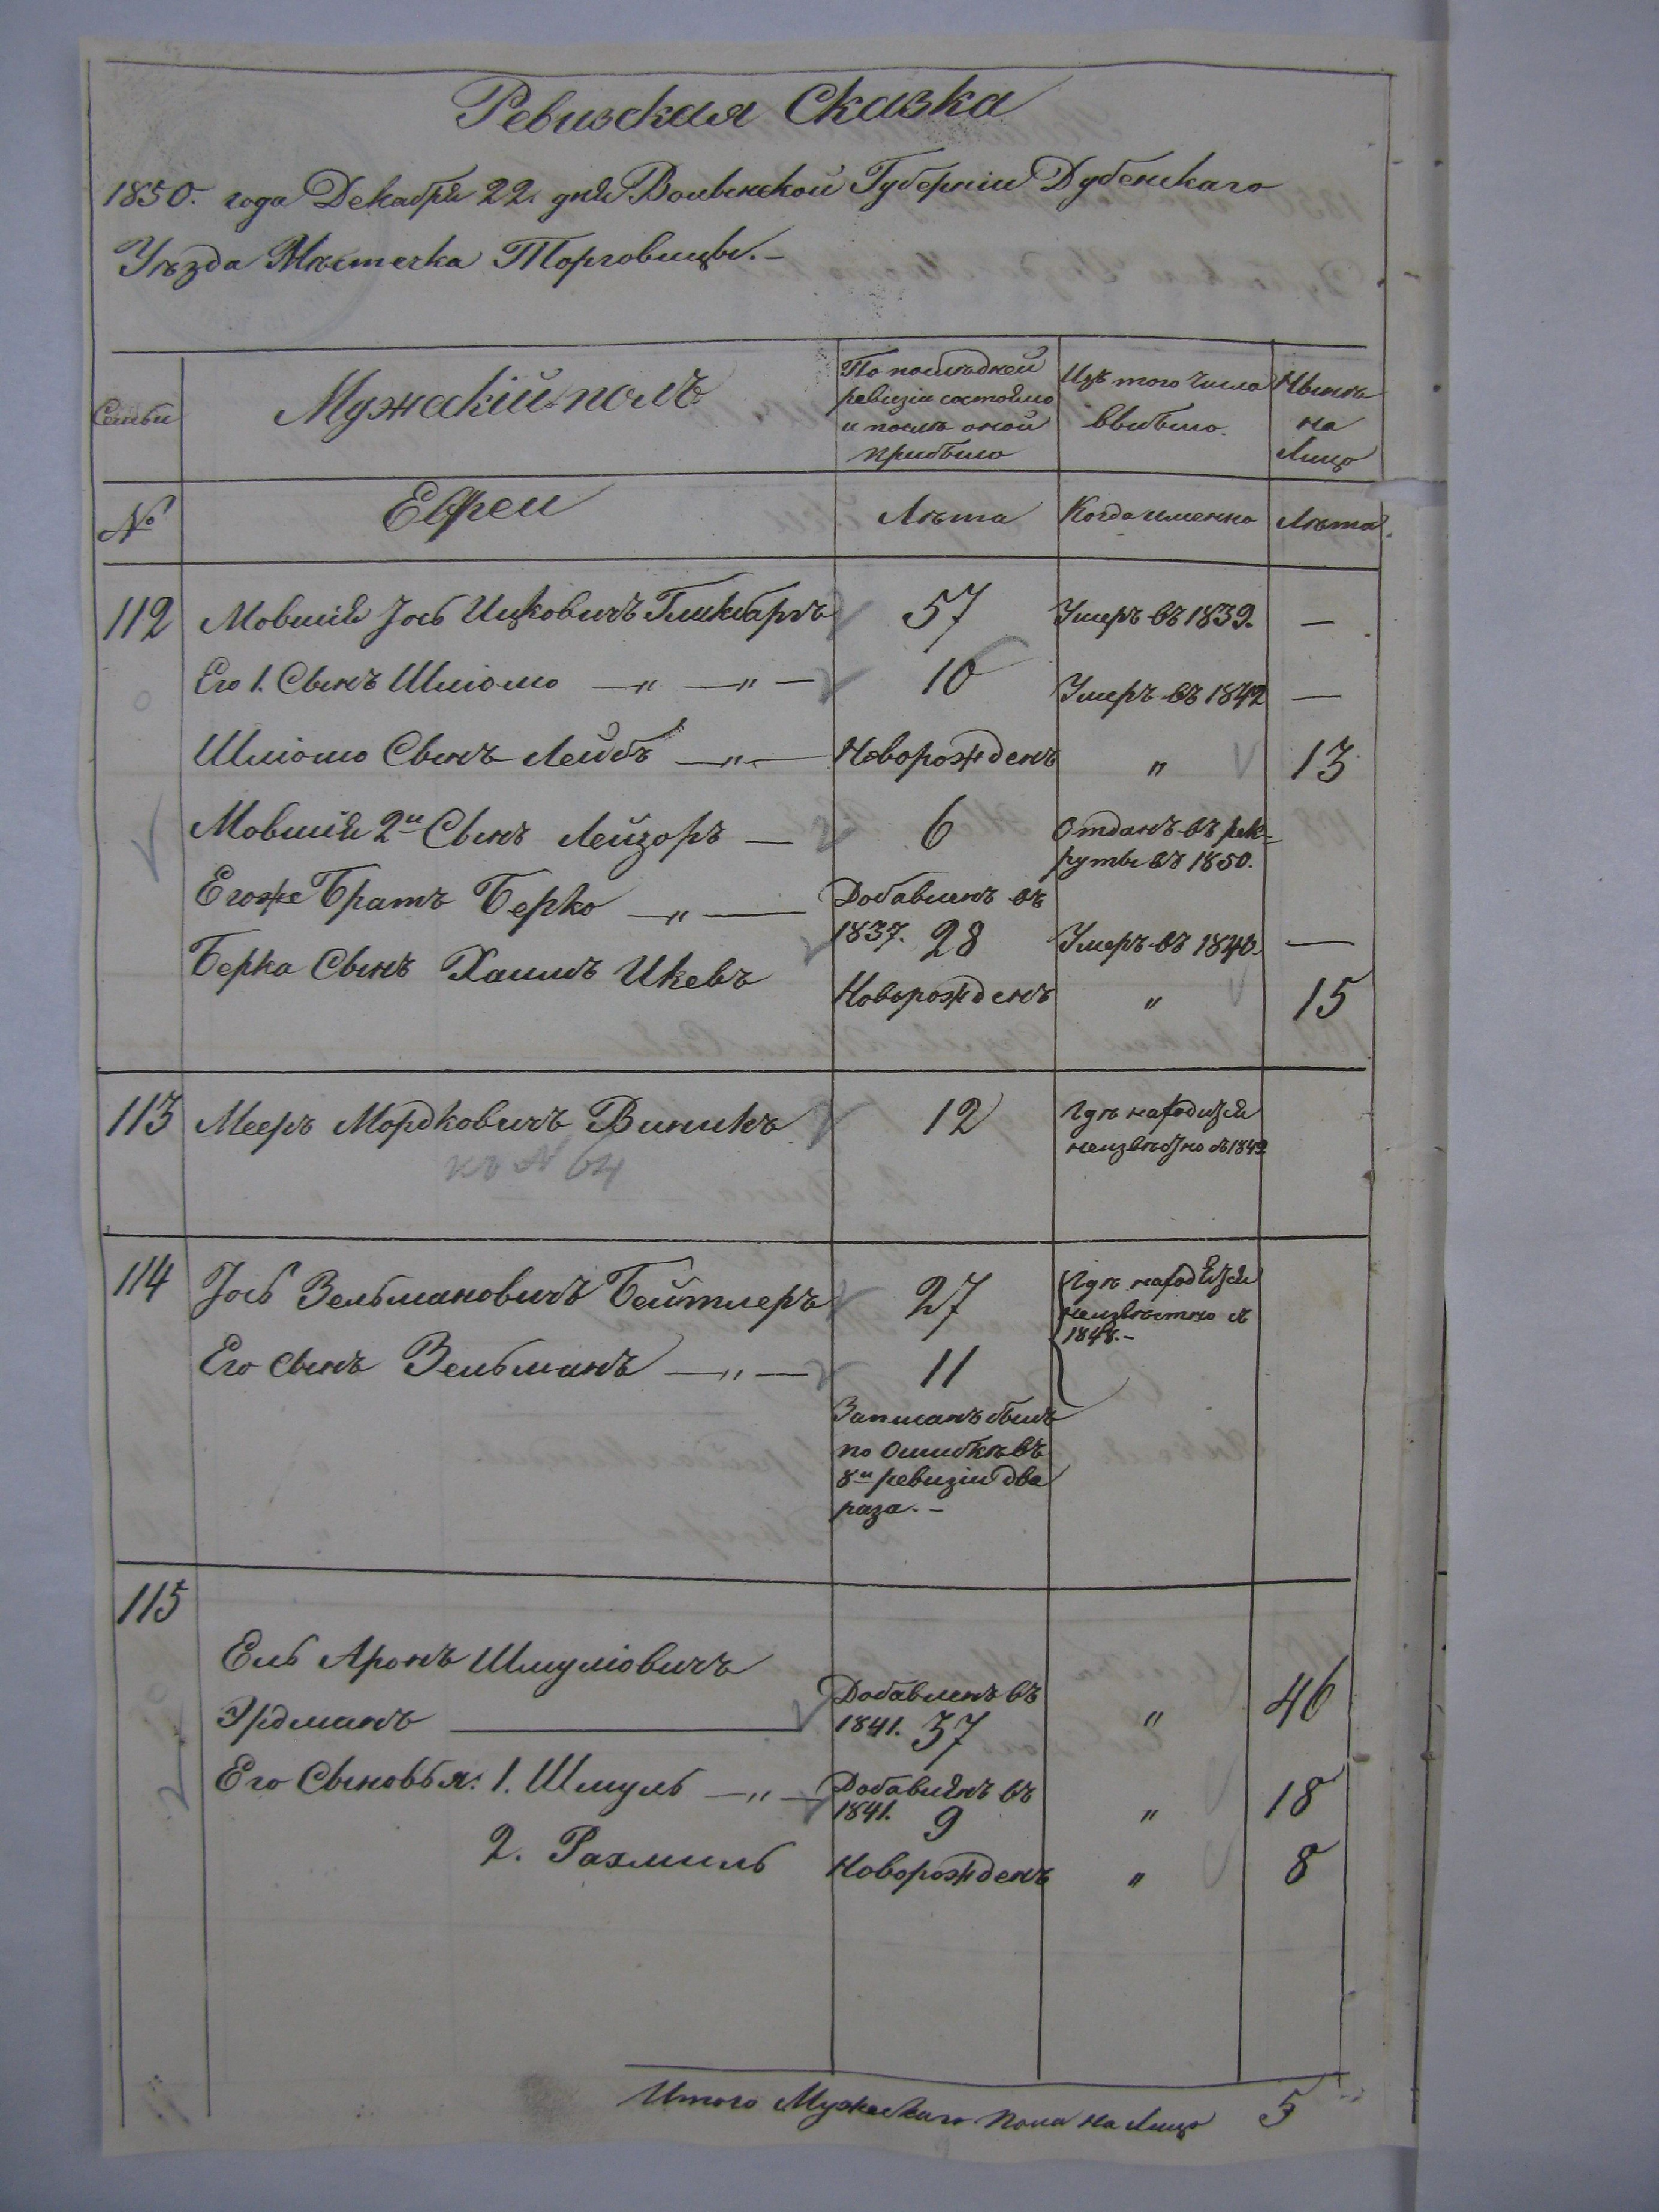 Ревизская Сказка
1850. года Декабря 22. дня Волынской Губерніи Дубенскаго
Уѣзда Мѣстечка Торговицы.-
Семьи
Мужескій полъ
По послѣдней
ревизіи состояло
и послѣ оной
прибыло
Изъ того числа
выбыло.
Нынѣ
на
Лицо
№
Евреи
Лѣта
Когда именно
Лѣта.
112 Мовшія Іось Ицковичъ 57 Умеръ въ 1839. —
Его 1. Сынъ Шліомо —"— —"— 10 Умеръ въ 1842 —
Шліомо Сынъ Лейбъ —"— Новорожденъ " 13
Мовшія 2й Сынъ Лейзоръ — 6 Отданъ въ рек-
руты въ 1850.
Егоже Братъ Берко —"— Добавленъ въ
1837. 28 Умеръ въ 1840. —
Берка Сынъ Хаимъ Икевъ Новорожденъ " 15
113 Мееръ Мордковичъ Виникъ 12 Гдѣ находится
неизвѣстно съ 1849.
къ № 64
114 Іось Зельмановичъ Бейтлеръ 27 Гдѣ находится
неизвѣстно съ
1848.-
Его сынъ Зельманъ —"— 11
Записанъ былъ
по ошибкѣ въ
8й ревизіи два
раза.-
115
Ель Аронъ Шмуліовичъ
Эрдманъ — Добавленъ въ
1841. 37 " 46
Его Сыновья: 1. Шмуль —"— Добавленъ въ
1841. 9 " 18
2. Рахмиль Новорожденъ " 8
Итого Мужескаго пола на Лицо 5